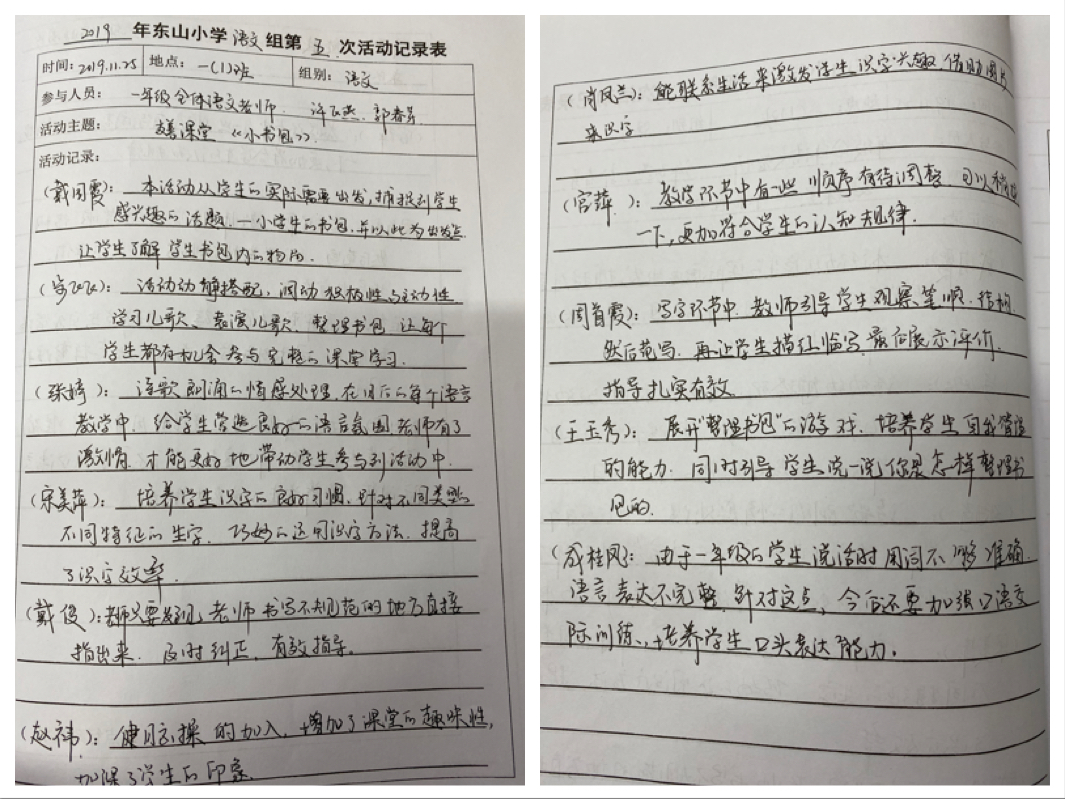 2019 年东山小学语文组第五次活动记录表
时间：2019.11.25 地点：一(1)班 组别：语文
参与人员：一年级全体语文老师
活动主题：课堂《小书包》.
活动记录：
(戴国霞)：本活动从学生的实际需要出发,捕捉到学生
感兴趣的话题,一小学生的书包,并以此为出发点
让学生了解学生书包内的物品.
活动动静搭配,调动积极性与主动性
学习儿歌、表演儿歌、整理书包,让每个
学生都有机会参与完整的课堂学习.
(张婷)：连歌朗诵的情感处理,在日后的每个语言
教学中,给学生营造良好的语言氛围,老师有了
激情,才能更好地带动学生参与到活动中.
(宋美萍)：培养学生识字的良好习惯,针对不同类型
不同特征的生字,巧妙的运用识字方法,提高
了识字效率.
(戴俊)：只要发现,老师书写不规范的地方直接
指出来,及时纠正,有效指导.
(赵祎)：健身操的加入,增加了课堂的趣味性,
加深了学生的印象.
(肖凤兰)：能联系生活来激发学生识字兴趣,借助图片
来识字
(官萍)：教学环节中有一些顺序有待调整,可以
一下,更加符合学生的认知规律.
(周首霞)：写字环节中,教师引导学生观察笔顺、结构,
然后范写,再让学生描红临写,最后展示评价,
指导扎实有效.
(王玉秀)：展开"整理书包"的游戏,培养学生自我管理
的能力.同时引导学生说一说你是怎样整理书
包的.
(成桂凤)：由于一年级的学生说话时用词不够准确.
语言表达不完整.针对这点,今后还要加强口语交
际训练,培养学生口头表达能力.